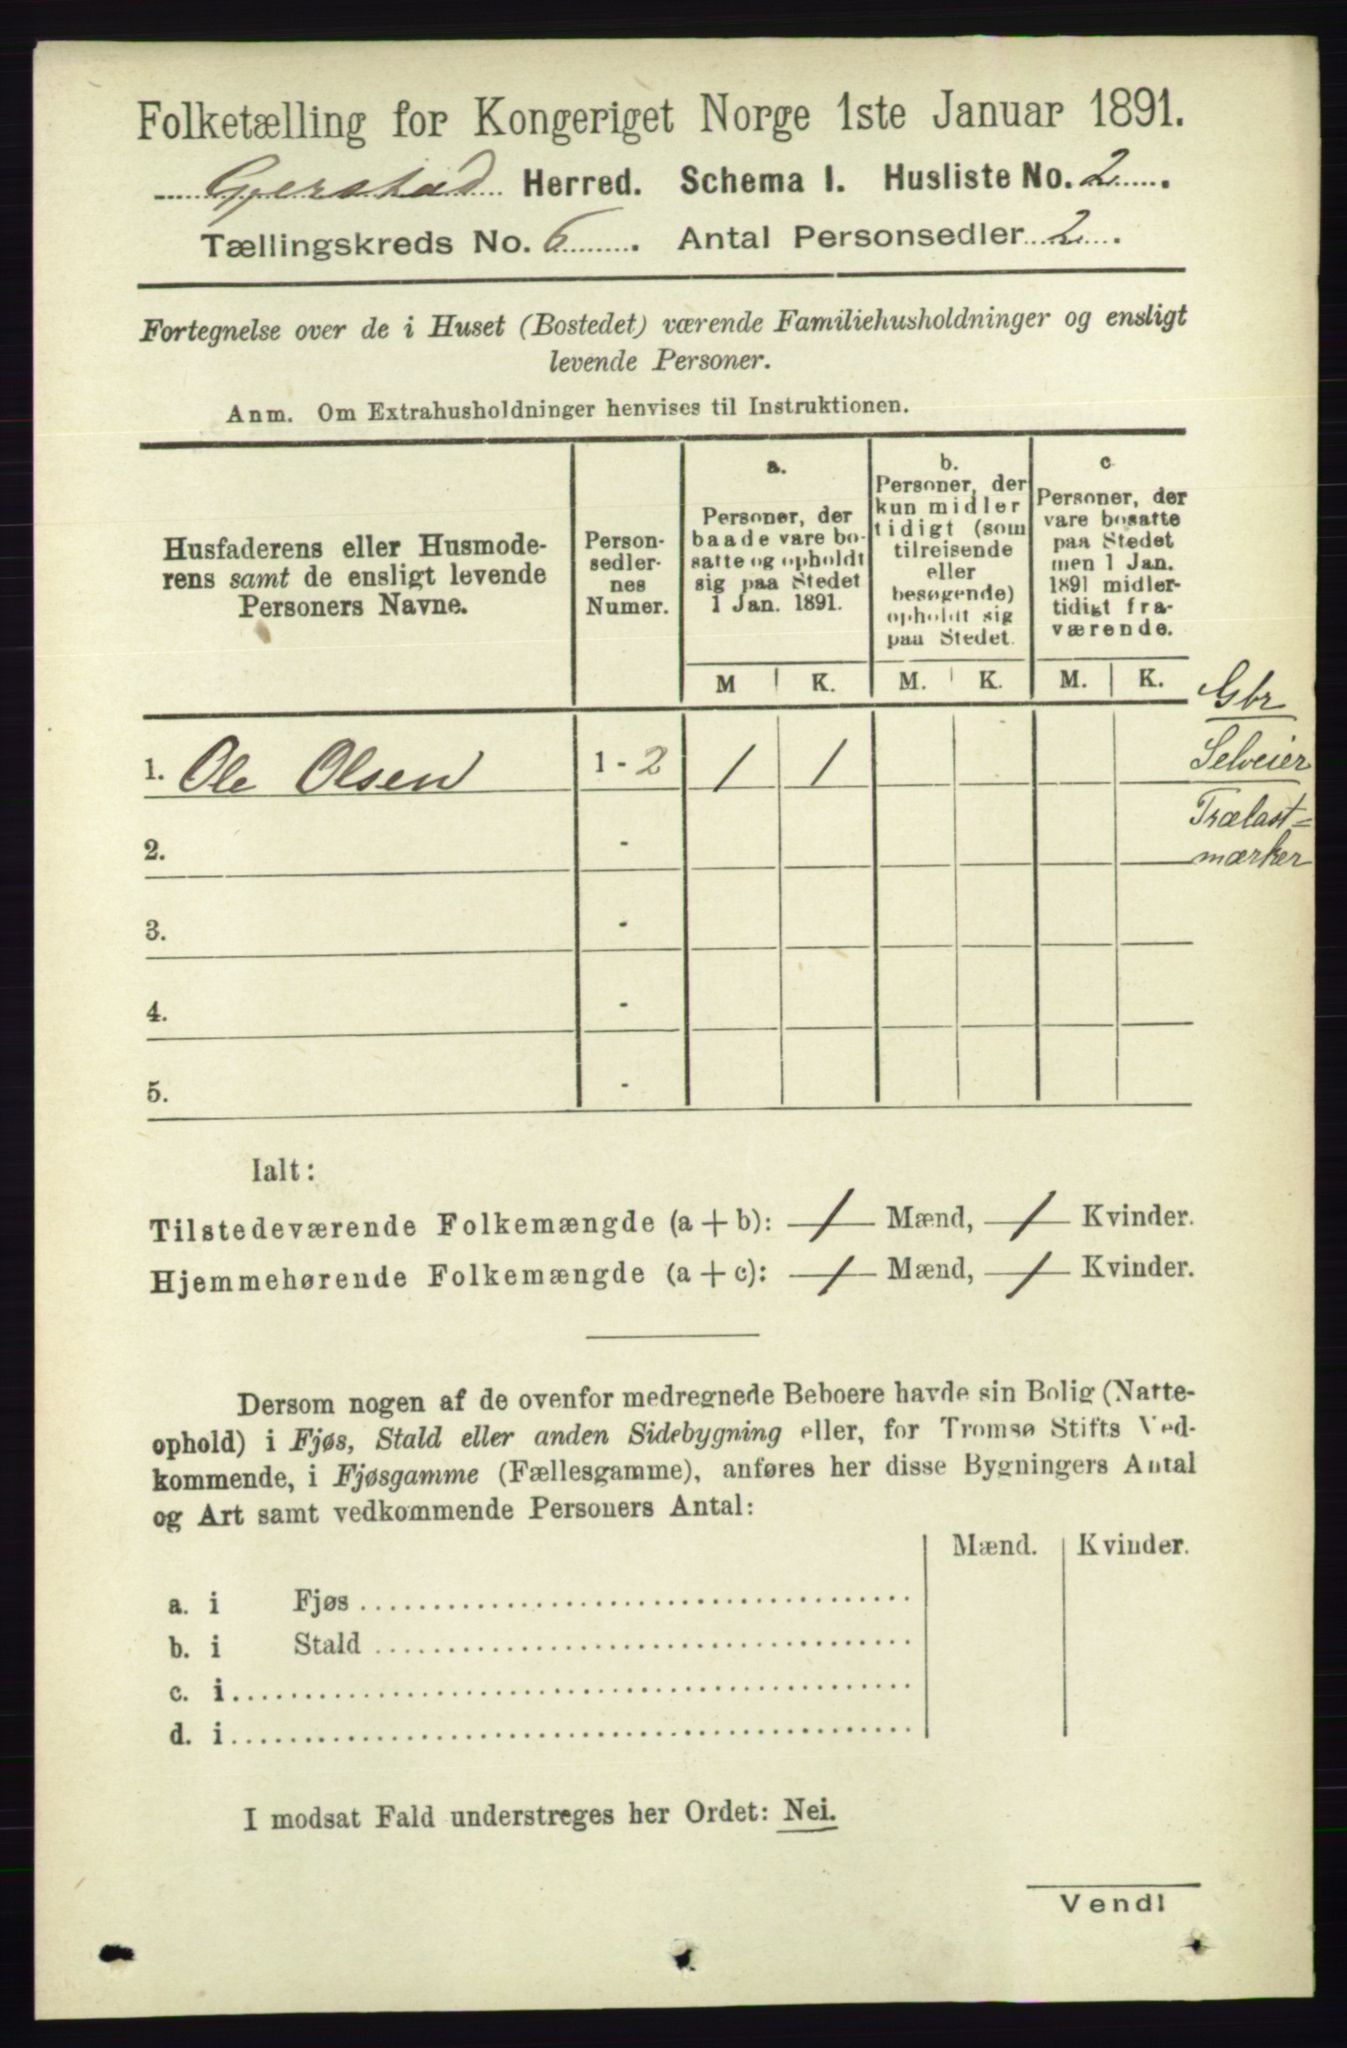 Folketælling for Kongeriget Norge 1ste Januar 1891.
Gjerstad Herred. Schema I. Husliste No. 2.
Tællingskreds No. 6. Antal Personsedler 2.
Fortegnelse over de i Huset (Bostedet) værende Familiehusholdninger og ensligt
levende Personer.
Anm. Om Extrahusholdninger henvises til Instruktionen.
Husfaderens eller Husmode-
rens samt de ensligt levende
Personers Navne.
Person-
sedler-
nes
Numer.
a.
Personer, der
baade vare bo-
satte og opholdt
sig paa Stedet
1 Jan. 1891.
b.
Personer, der
kun midler
tidigt (som
tilreisende
eller
besøgende)
opholdt sig
paa Stedet.
c
Personer, der
vare bosatte
paa Stedet
men 1 Jan.
1891 midler-
tidigt fra-
værende.
M K. M. K. M. K.
Gbr
Selveier
Trælast=
mærker
1. Ole Olsen 1 - 2 1 1
2. -
3. -
4. -
5. -
Ialt:
Tilstedeværende Folkemængde (a + b): 1 Mænd, 1 Kvinder.
Hjemmehørende Folkemængde (a + c): 1 Mænd, 1 Kvinder.
Dersom nogen af de ovenfor medregnede Beboere havde sin Bolig (Natte-
ophold) i Fjøs, Stald eller anden Sidebygning eller, for Tromsø Stifts Ved-
kommende, i Fjøsgamme (Fællesgamme), anføres her disse Bygningers Antal
og Art samt vedkommende Personers Antal:
Mænd. Kvinder.
a. i Fjøs
b. i Stald
c. i
d. i
I modsat Fald understreges her Ordet: Nei.
Vend!